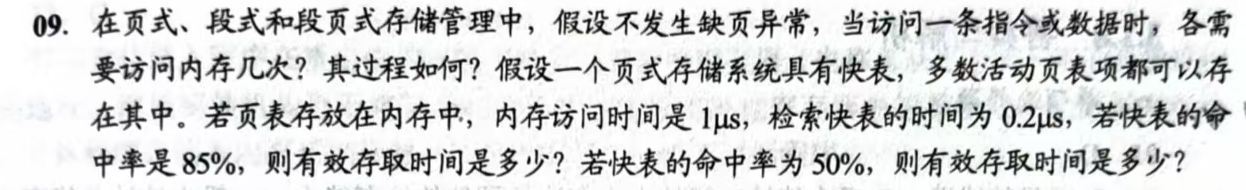 09. 在页式、段式和段页式存储管理中，假设不发生缺页异常，当访问一条指令或数据时，各需
要访问内存几次？其过程如何？假设一个页式存储系统具有快表，多数活动页表项都可以存
在其中。若页表存放在内存中，内存访问时间是 1μs，检索快表的时间为 0.2μs，若快表的命
中率是 85%，则有效存取时间是多少？若快表的命中率为 50%，则有效存取时间是多少？